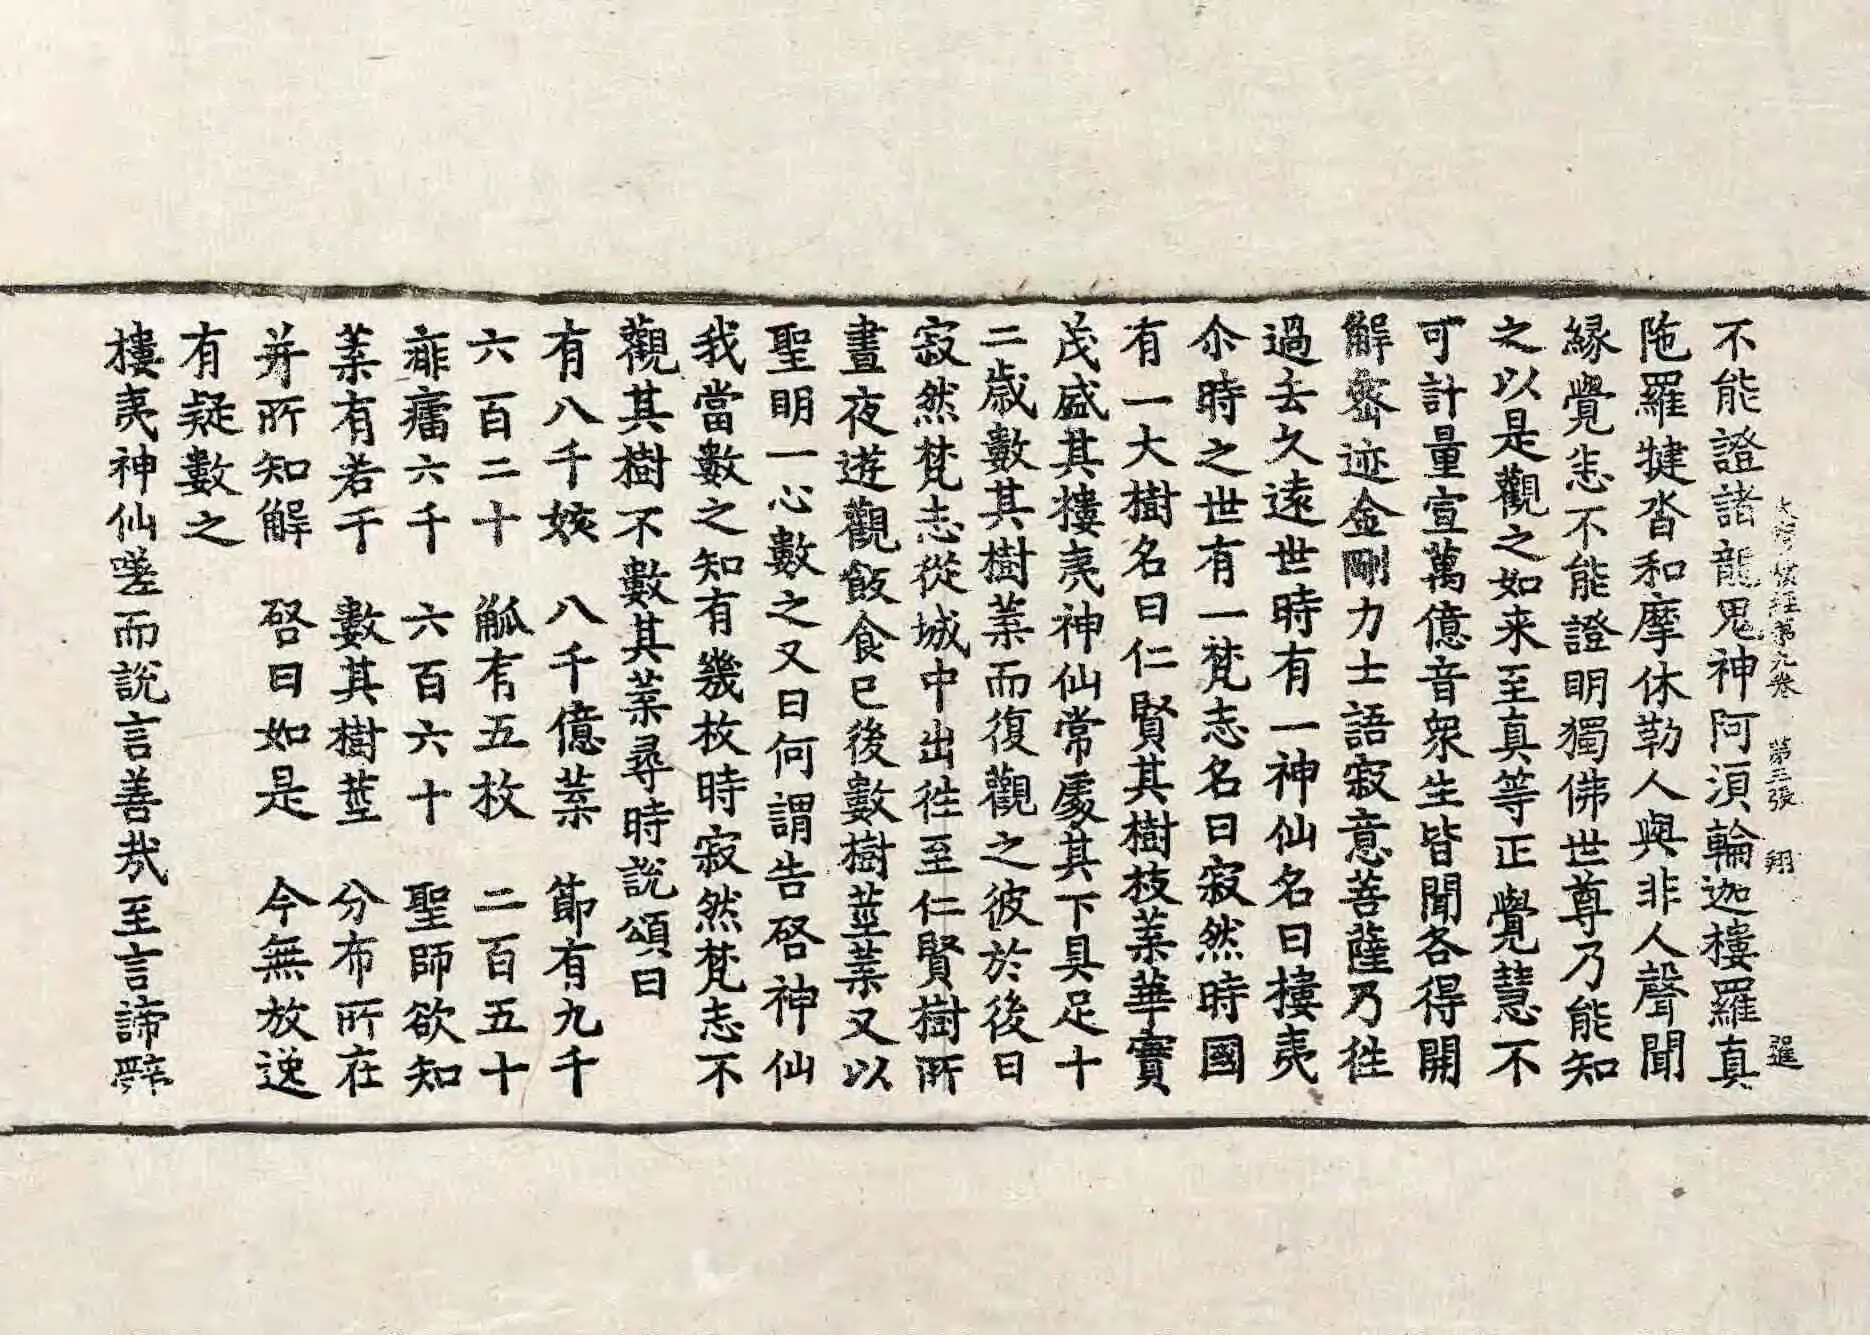 大寶積經第九卷 第三張 翔 選
不能證諸龍鬼神阿湏輪迦樓羅真
陁羅揵沓和摩休勒人與非人聲聞
縁覺悉不能證明獨佛世尊乃能知
之以是觀之如来至真等正覺慧不
可計量宣萬億音衆生皆聞各得開
解密迹金剛力士語寂意菩薩乃徃
過去久遠世時有一神仙名曰樓夷
尒時之世有一梵志名曰寂然時國
有一大樹名曰仁賢其樹枝葉華實
茂盛其樓夷神仙常處其下具足十
二歳數其樹葉而復觀之彼於後日
寂然梵志從城中出徃至仁賢樹所
晝夜遊觀飯食已後數樹莖葉又以
聖明一心數之又曰何謂告啓神仙
我當數之知有幾枚時寂然梵志不
觀其樹不數其葉尋時說頌曰
有八千姟 八千億葉 節有九千
六百二十 觚有五枚 二百五十
痱癗六千 六百六十 聖師欲知
葉有若干 數其樹莖 分布所在
并所知解 啓曰如是 今無放逸
有疑數之
樓夷神仙嗟而說言善哉至言諦辭